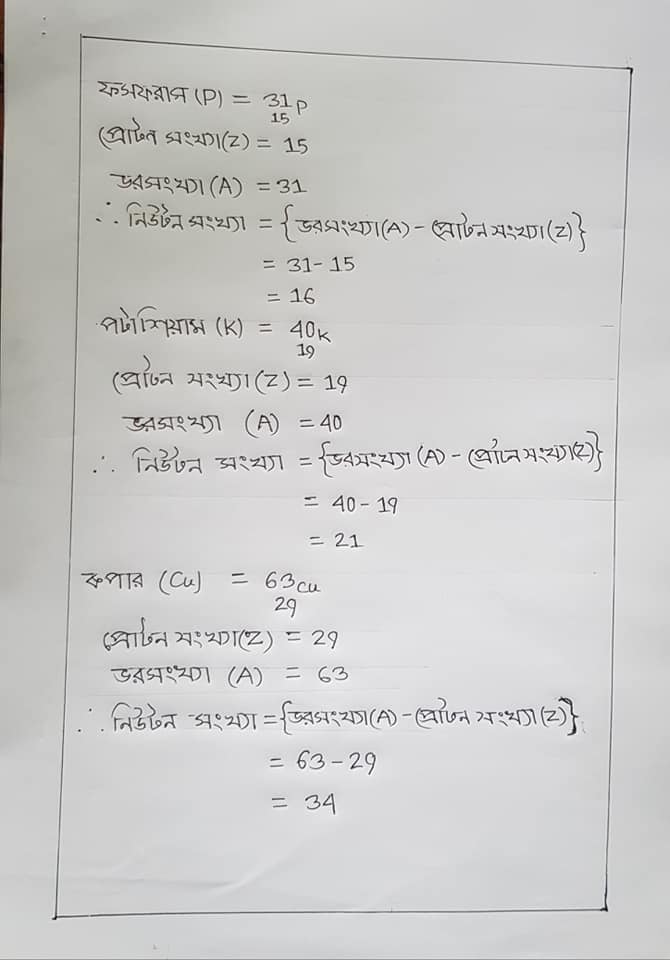 ফসফরাস (P) = 31P
15
প্রোটন সংখ্যা(Z) = 15
ভরসংখ্যা (A) = 31
∴ নিউটন সংখ্যা = {ভরসংখ্যা(A) - প্রোটন সংখ্যা(Z)}
= 31-15
= 16
পটাশিয়াম (K) = 40K
19
প্রোটন সংখ্যা(Z) = 19
ভরসংখ্যা (A) = 40
∴ নিউটন সংখ্যা = {ভরসংখ্যা (A) - প্রোটন সংখ্যা(Z)}
= 40-19
= 21
কপার (Cu) = 63Cu
29
প্রোটন সংখ্যা(Z) = 29
ভরসংখ্যা (A) = 63
∴ নিউটন সংখ্যা = {ভরসংখ্যা(A) - প্রোটন সংখ্যা(Z)}
= 63-29
= 34